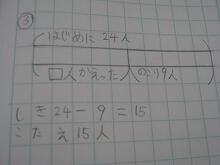 ③
はじめに 24人
□人かえった人 のこり9人
しき 24-9=15
こたえ 15人